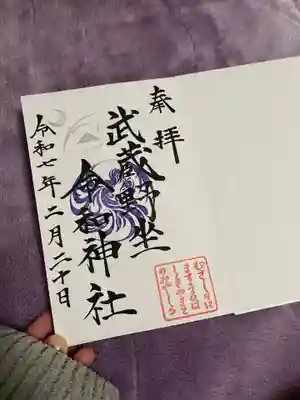 奉拝
武蔵野坐
令和神社
令和七年二月二十日